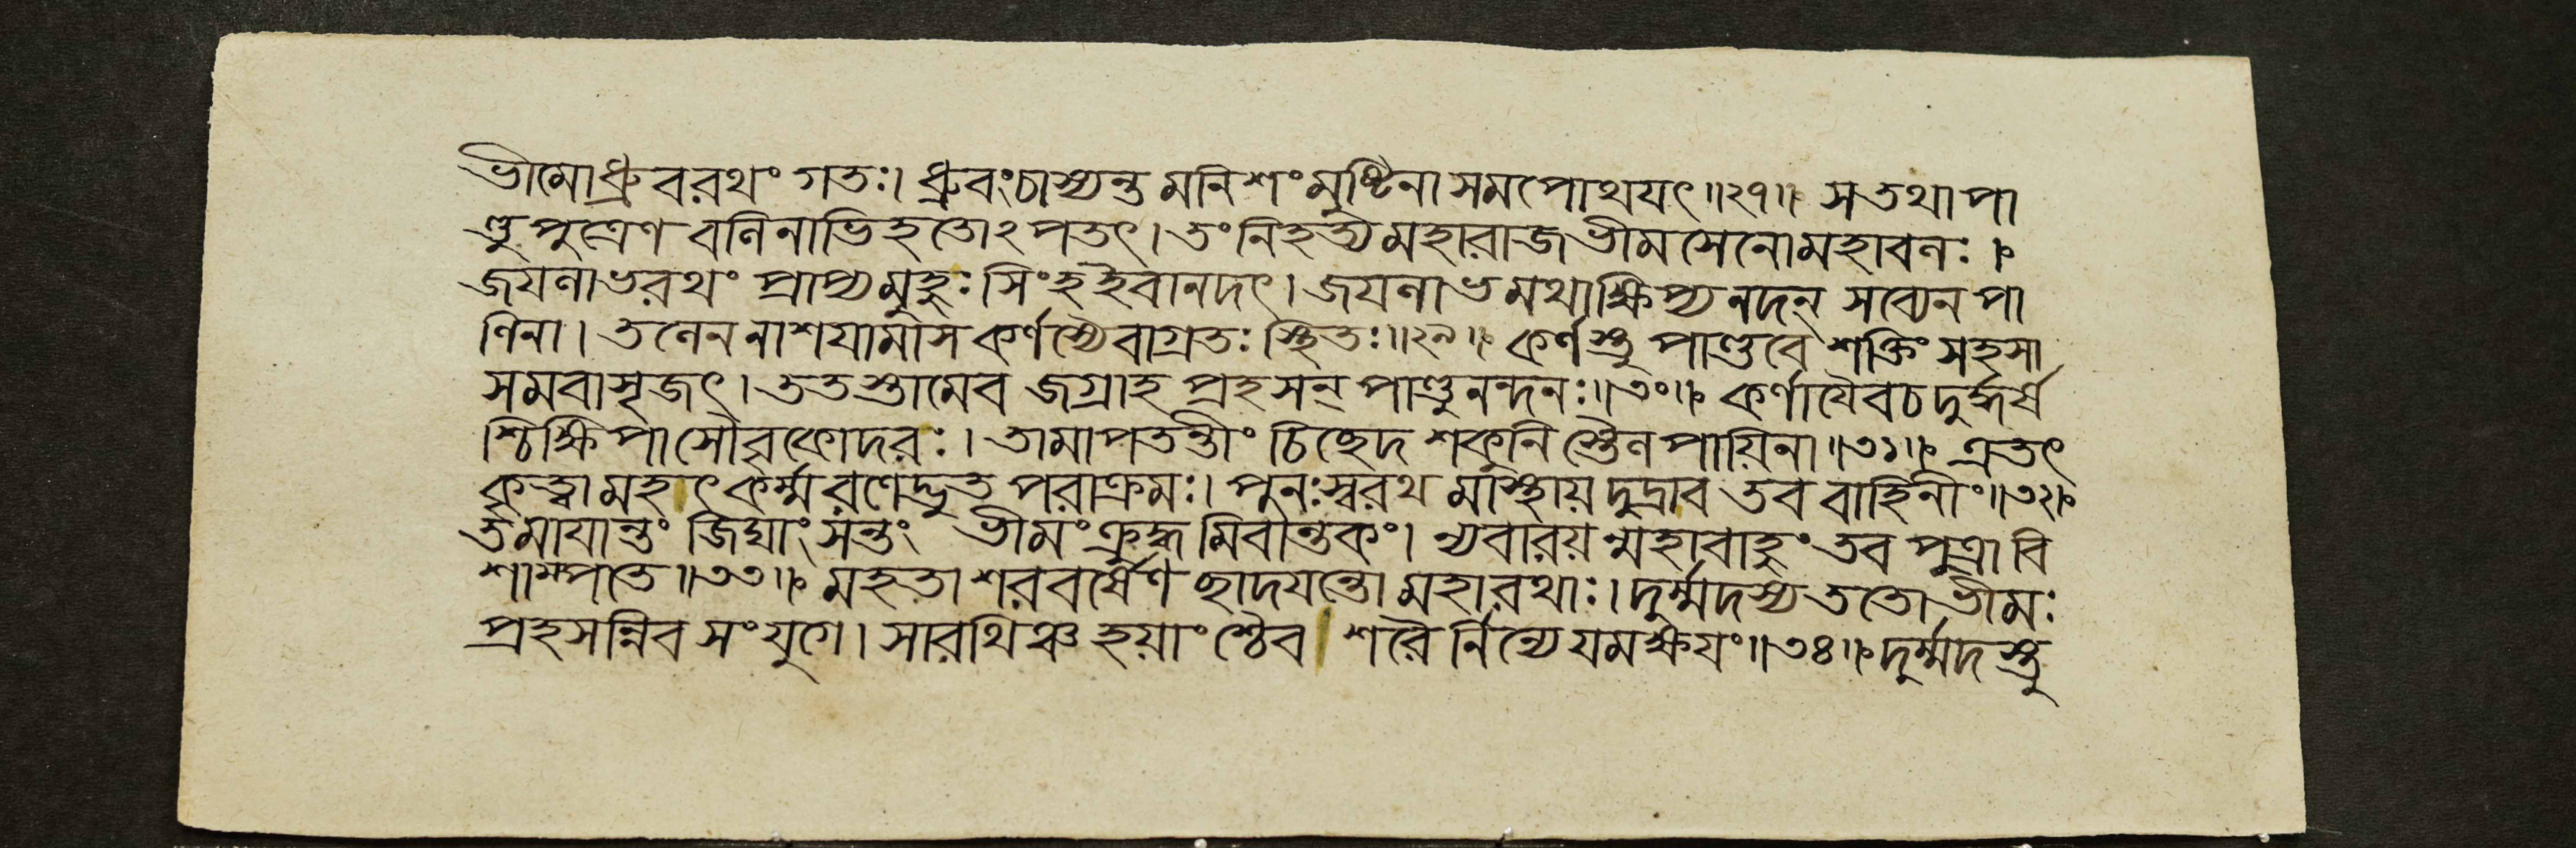 ভীমোধ্রুবরথং গতঃ। ধ্রুবংচাস্যন্ত মনিশং মুষ্টিনা সমপোথযৎ॥২৭॥ স তথা পা
ণ্ডু পুত্রেণ বলিনাভিহতোঽপতৎ। তং নিহত্য মহারাজ ভীমসেনো মহাবলঃ।
জযলাভরথং প্রাপ্য মুহুঃ সিংহইবানদৎ। জযলাভমথাক্ষিপ্য নদন্ সব্যেন পা
ণিনা। তলেন নাশযামাস কর্ণস্যৈবাগ্রতঃ স্থিতঃ॥২৯॥ কর্ণস্তু পাণ্ডবে শক্তিং সহসা
সমবাসৃজৎ। ততস্তামেব জগ্রাহ প্রহসন্ পাণ্ডুনন্দনঃ॥৩০॥ কর্ণাযৈবচ দুর্দ্ধর্ষ
শ্চিক্ষিপাসৌবৃকোদরঃ। তামাপতন্তীং চিছেদ শকুনিস্তৈলপায়িনা॥৩১॥ এতৎ
কৃত্বা মহৎকর্ম্ম রণেদ্ভুত পরাক্রমঃ। পুনঃস্বরথ মাস্থায় দুদ্রাব তব বাহিনীং॥৩২॥
তমাযান্তং জিঘাংসন্তং ভীমং ক্রুদ্ধ মিবান্তকং। ন্যবারয়ন্মহাবাহুং তব পুত্রা বি
শাম্পতে॥৩৩॥ মহতা শরবর্ষেণ ছাদযন্তো মহারথাঃ। দুর্ম্মদস্য ততো ভীমঃ
প্রহসন্নিব সংযুগে। সারথিঞ্চ হয়াংশ্চৈব শরৈর্নিন্যে যমক্ষযং॥৩৪॥ দুর্ম্মদস্তু